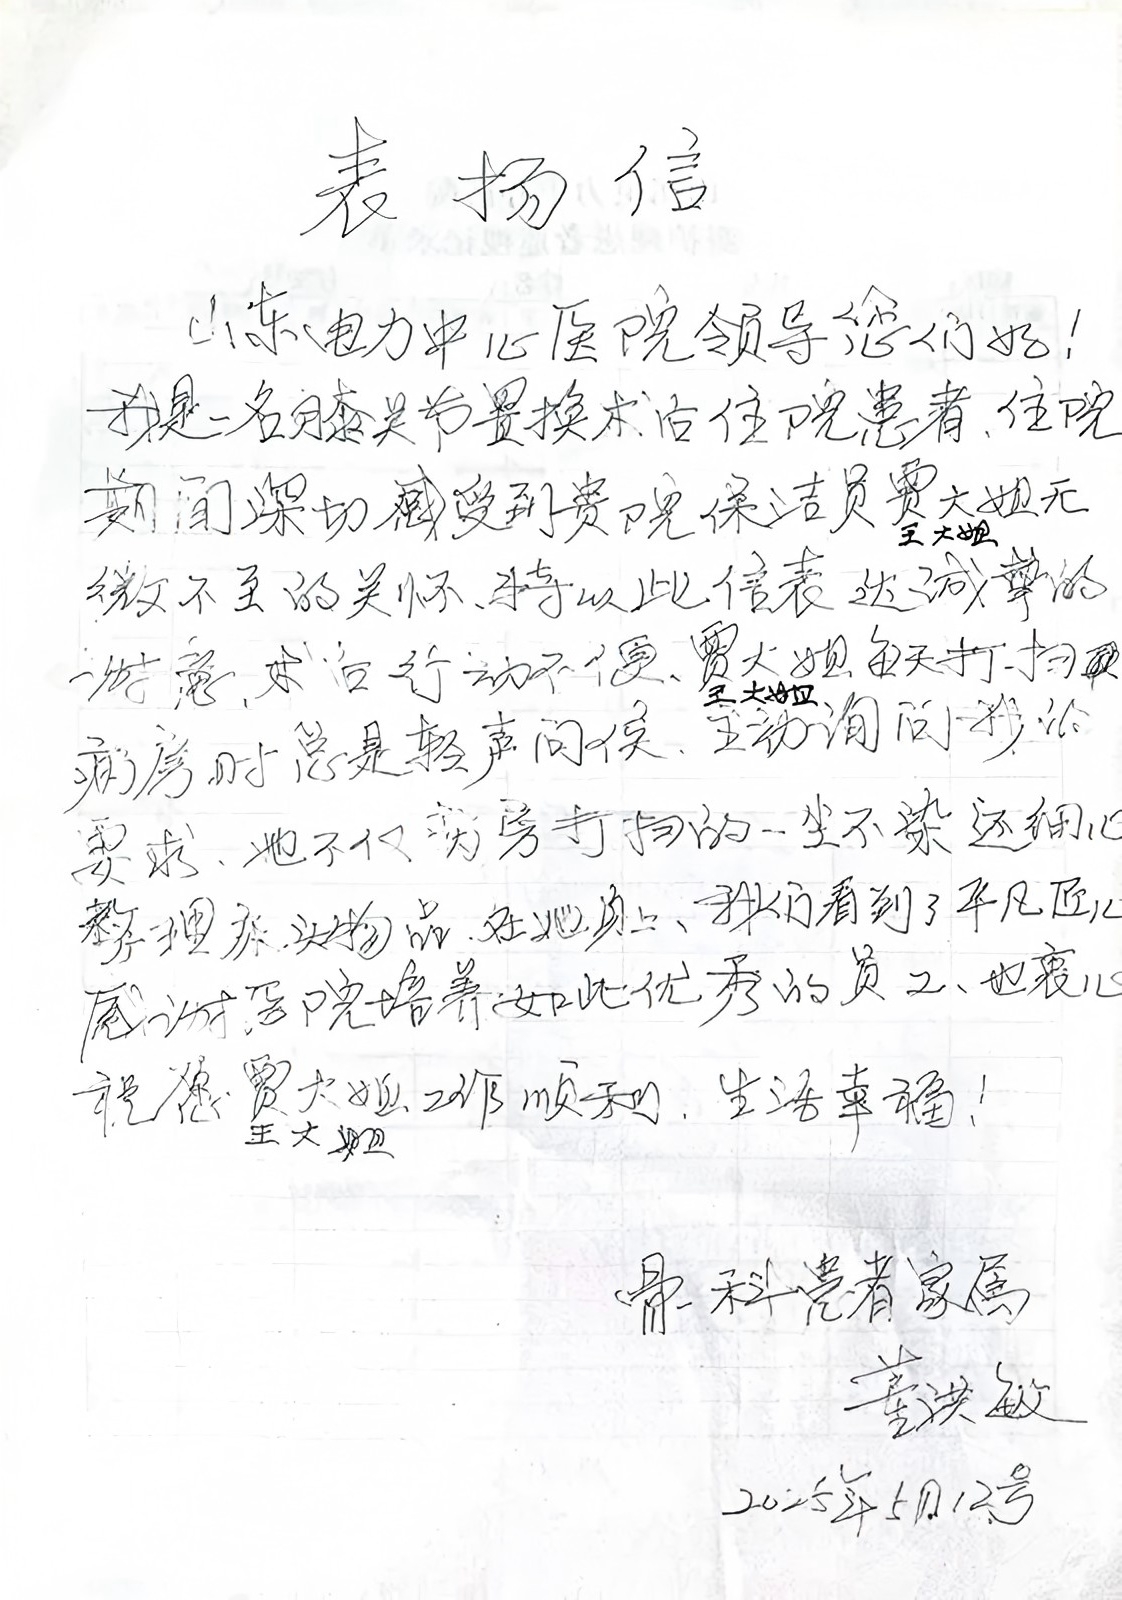 表扬信
山东电力中心医院领导您们好！
我是一名膝关节置换术后住院患者、住院
期间深切感受到贵院保洁员贾大姐无
王大姐
微不至的关怀、特以此信表达诚挚的
谢意、术后行动不便、贾大姐每天打扫
王大姐
病房时总是轻声问候、主动询问我的
需求、她不仅病房打扫的一尘不染还细心
整理床头物品、在她身上、我们看到了平凡匠心
感谢医院培养如此优秀的员工、也衷心
祝愿贾大姐工作顺利、生活幸福！
王大姐
骨科患者家属
董洪敏
2025年5月12号